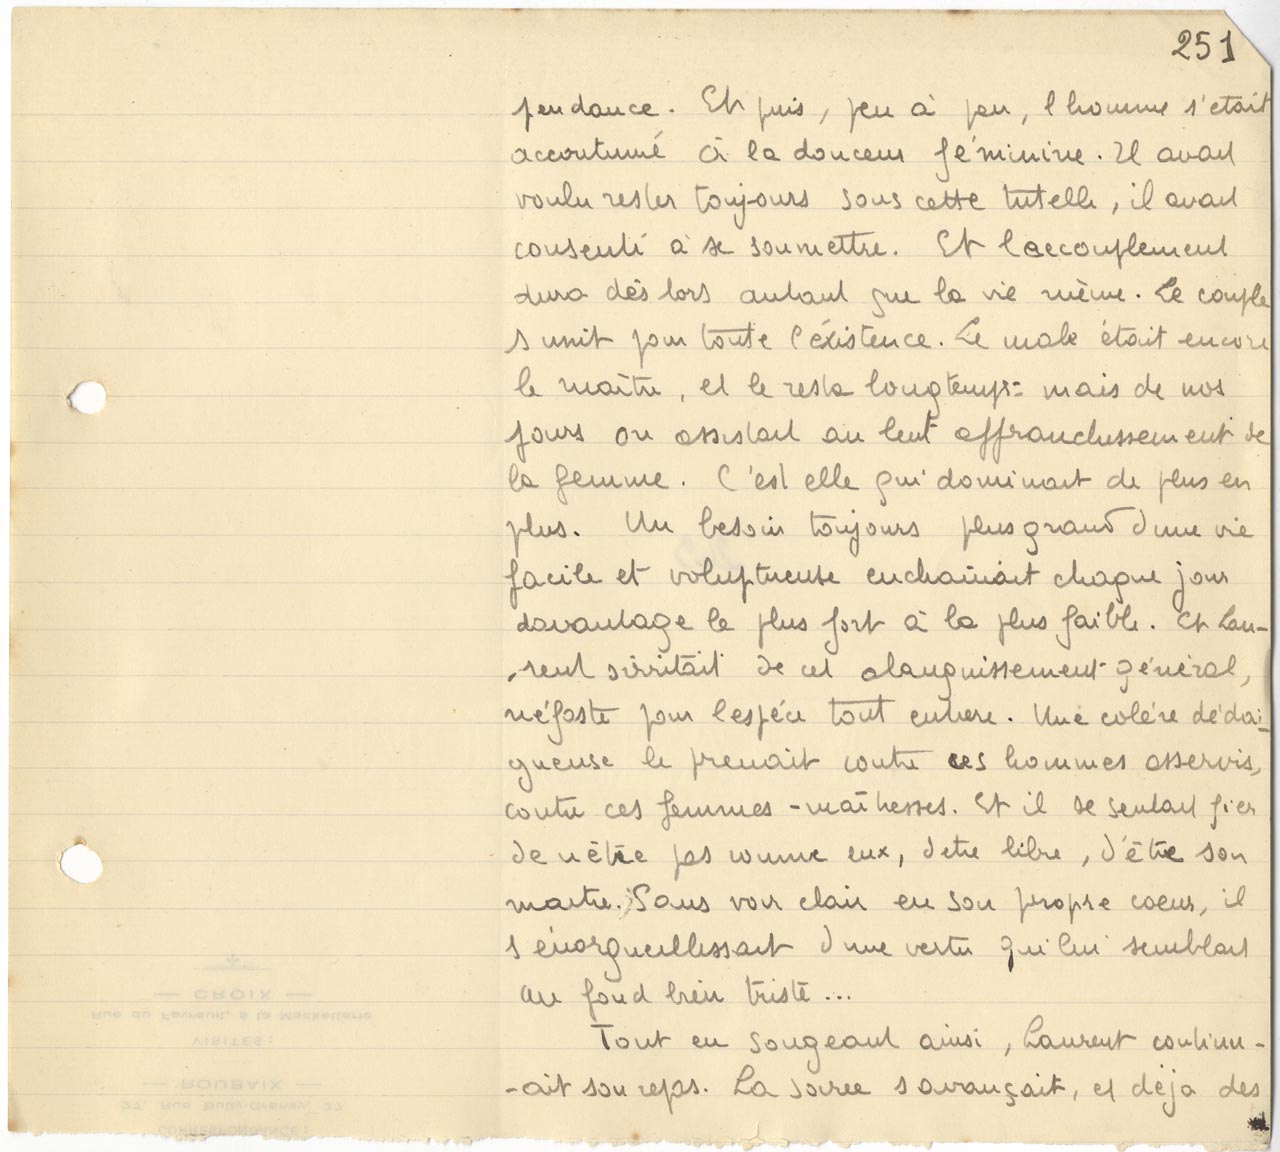 251
pendance. Et puis, peu à peu, l'homme s'était
accoutumé à la douceur féminine. Il avait
voulu rester toujours sous cette tutelle, il avait
consenti à se soumettre. Et l'accouplement
dura dès lors autant que la vie même. Le couple
s'unit pour toute l'éxistence. Le male était encore
le maître, et le resta longtemps: mais de nos
jours on assistait au lent affranchissement de
la femme. C'est elle qui dominait de plus en
plus. Un besoin toujours plus grand d'une vie
facile et voluptueuse enchaînait chaque jour
davantage le plus fort à la plus faible. Et Lau-
-rent s'irritait de cet alanguissement général,
néfaste pour l'espèce tout entiere. Une colère dédai-
gneuse le prenait contre ces hommes asservis,
contre ces femmes-maîtresses. Et il se sentait fier
de n'être pas comme eux, d'etre libre, d'être son
maitre. Sans voir clair en son propre coeur, il
s'énorgueillissait d'une vertu qui lui semblait
au fond bien triste...
Tout en songeant ainsi, Laurent continu-
-ait son repas. La soirée s'avançait, et déja des
CROIX
Rue du Favreuil, à la Mackellerie
VISITES:
ROUBAIX
27, Rue Bully-Grenay, 27
CORRESPONDANCE: